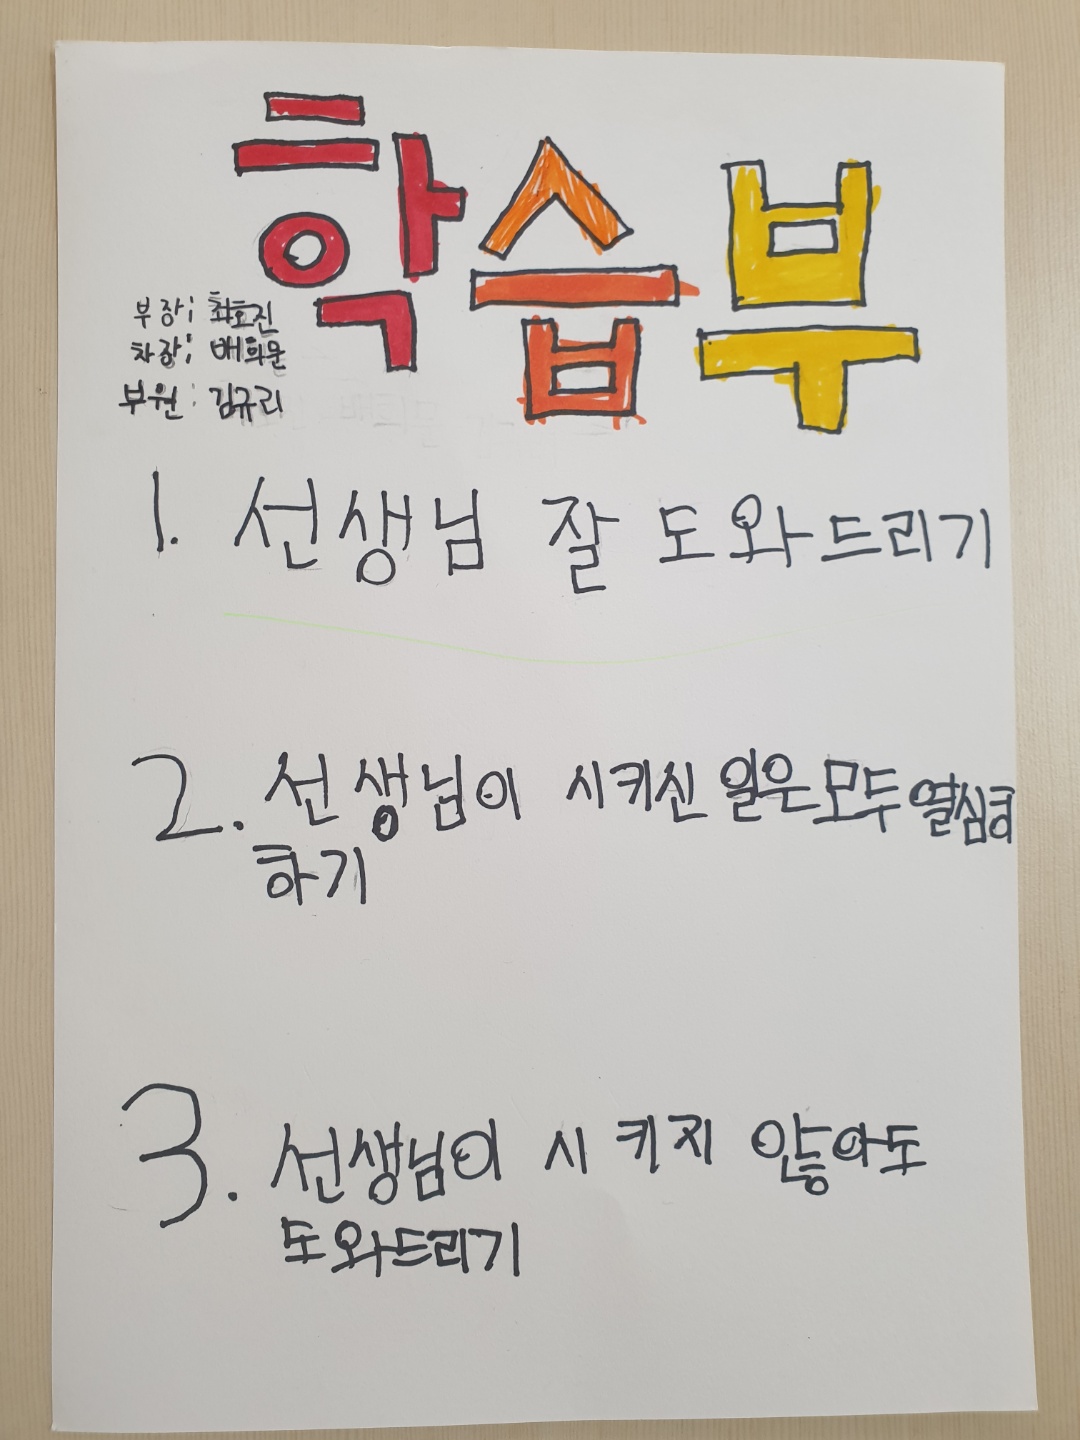 학습부
부장; 최호진
차장; 배희윤
부원: 김규리
1. 선생님 잘 도와드리기
2. 선생님이 시키신 일은 모두 열심히
하기
3. 선생님이 시키지 않아도
도와드리기